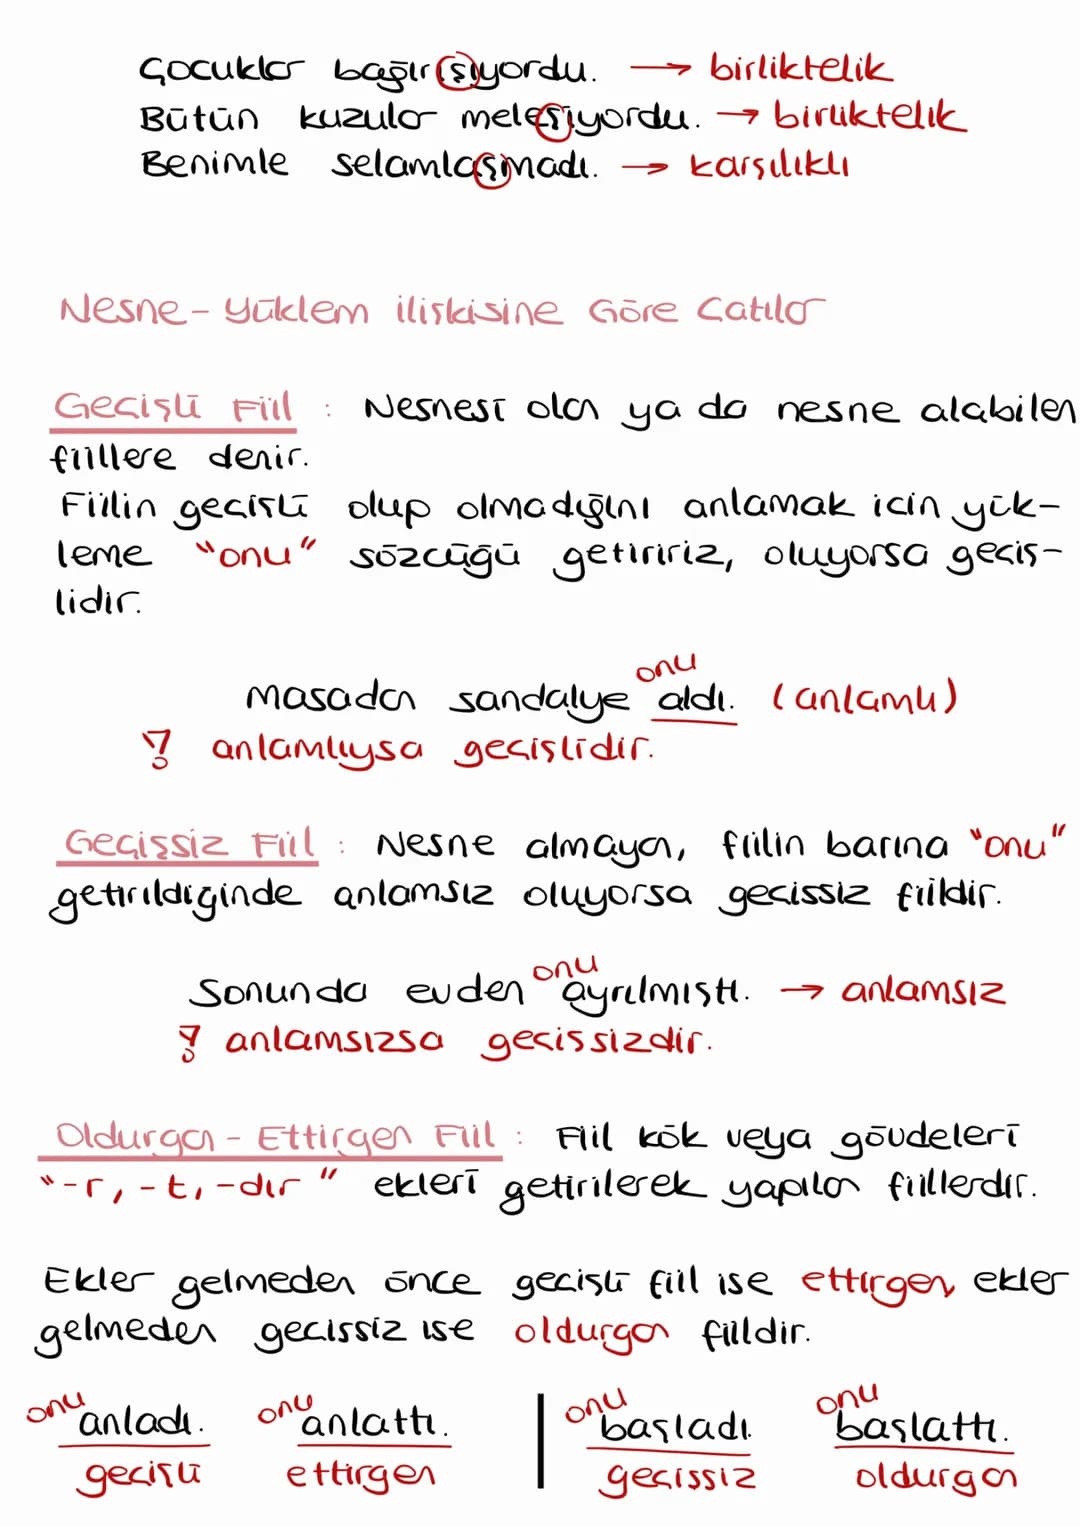 Çocuklar bağırışıyordu. → birliktelik
Bütün kuzular meleşiyordu. → birliktelik
Benimle selamlaşmadı. → karşılıklı
Nesne-Yüklem ilişkisine Göre Çatılar
Geçişli Fiil : Nesnesi olan ya da nesne alabilen
fiillere denir.
Fiilin geçişli olup olmadığını anlamak için yük-
leme "onu" sözcüğü getiririz, oluyorsa geçiş-
lidir.
onu
Masadan sandalye aldı. (anlamlı)
! anlamlıysa geçişlidir.
Geçişsiz Fiil : Nesne almayan, fiilin barına "onu"
getirildiğinde anlamsız oluyorsa geçissiz fiildir.
onu
Sonunda evden ayrılmıştı. → anlamsız
! anlamsızsa geçissizdir.
Oldurgan - Ettirgen Fiil : Fiil kök veya gövdeleri
"-r, -t, -dır" ekleri getirilerek yapılan fiillerdir.
Ekler gelmeden önce geçişli fiil ise ettirgen, ekler
gelmeden geçissiz ise oldurgan fiildir.
onu anladı. onu anlattı. | onu başladı. onu başlattı.
geçişli ettirgen geçissiz oldurgan